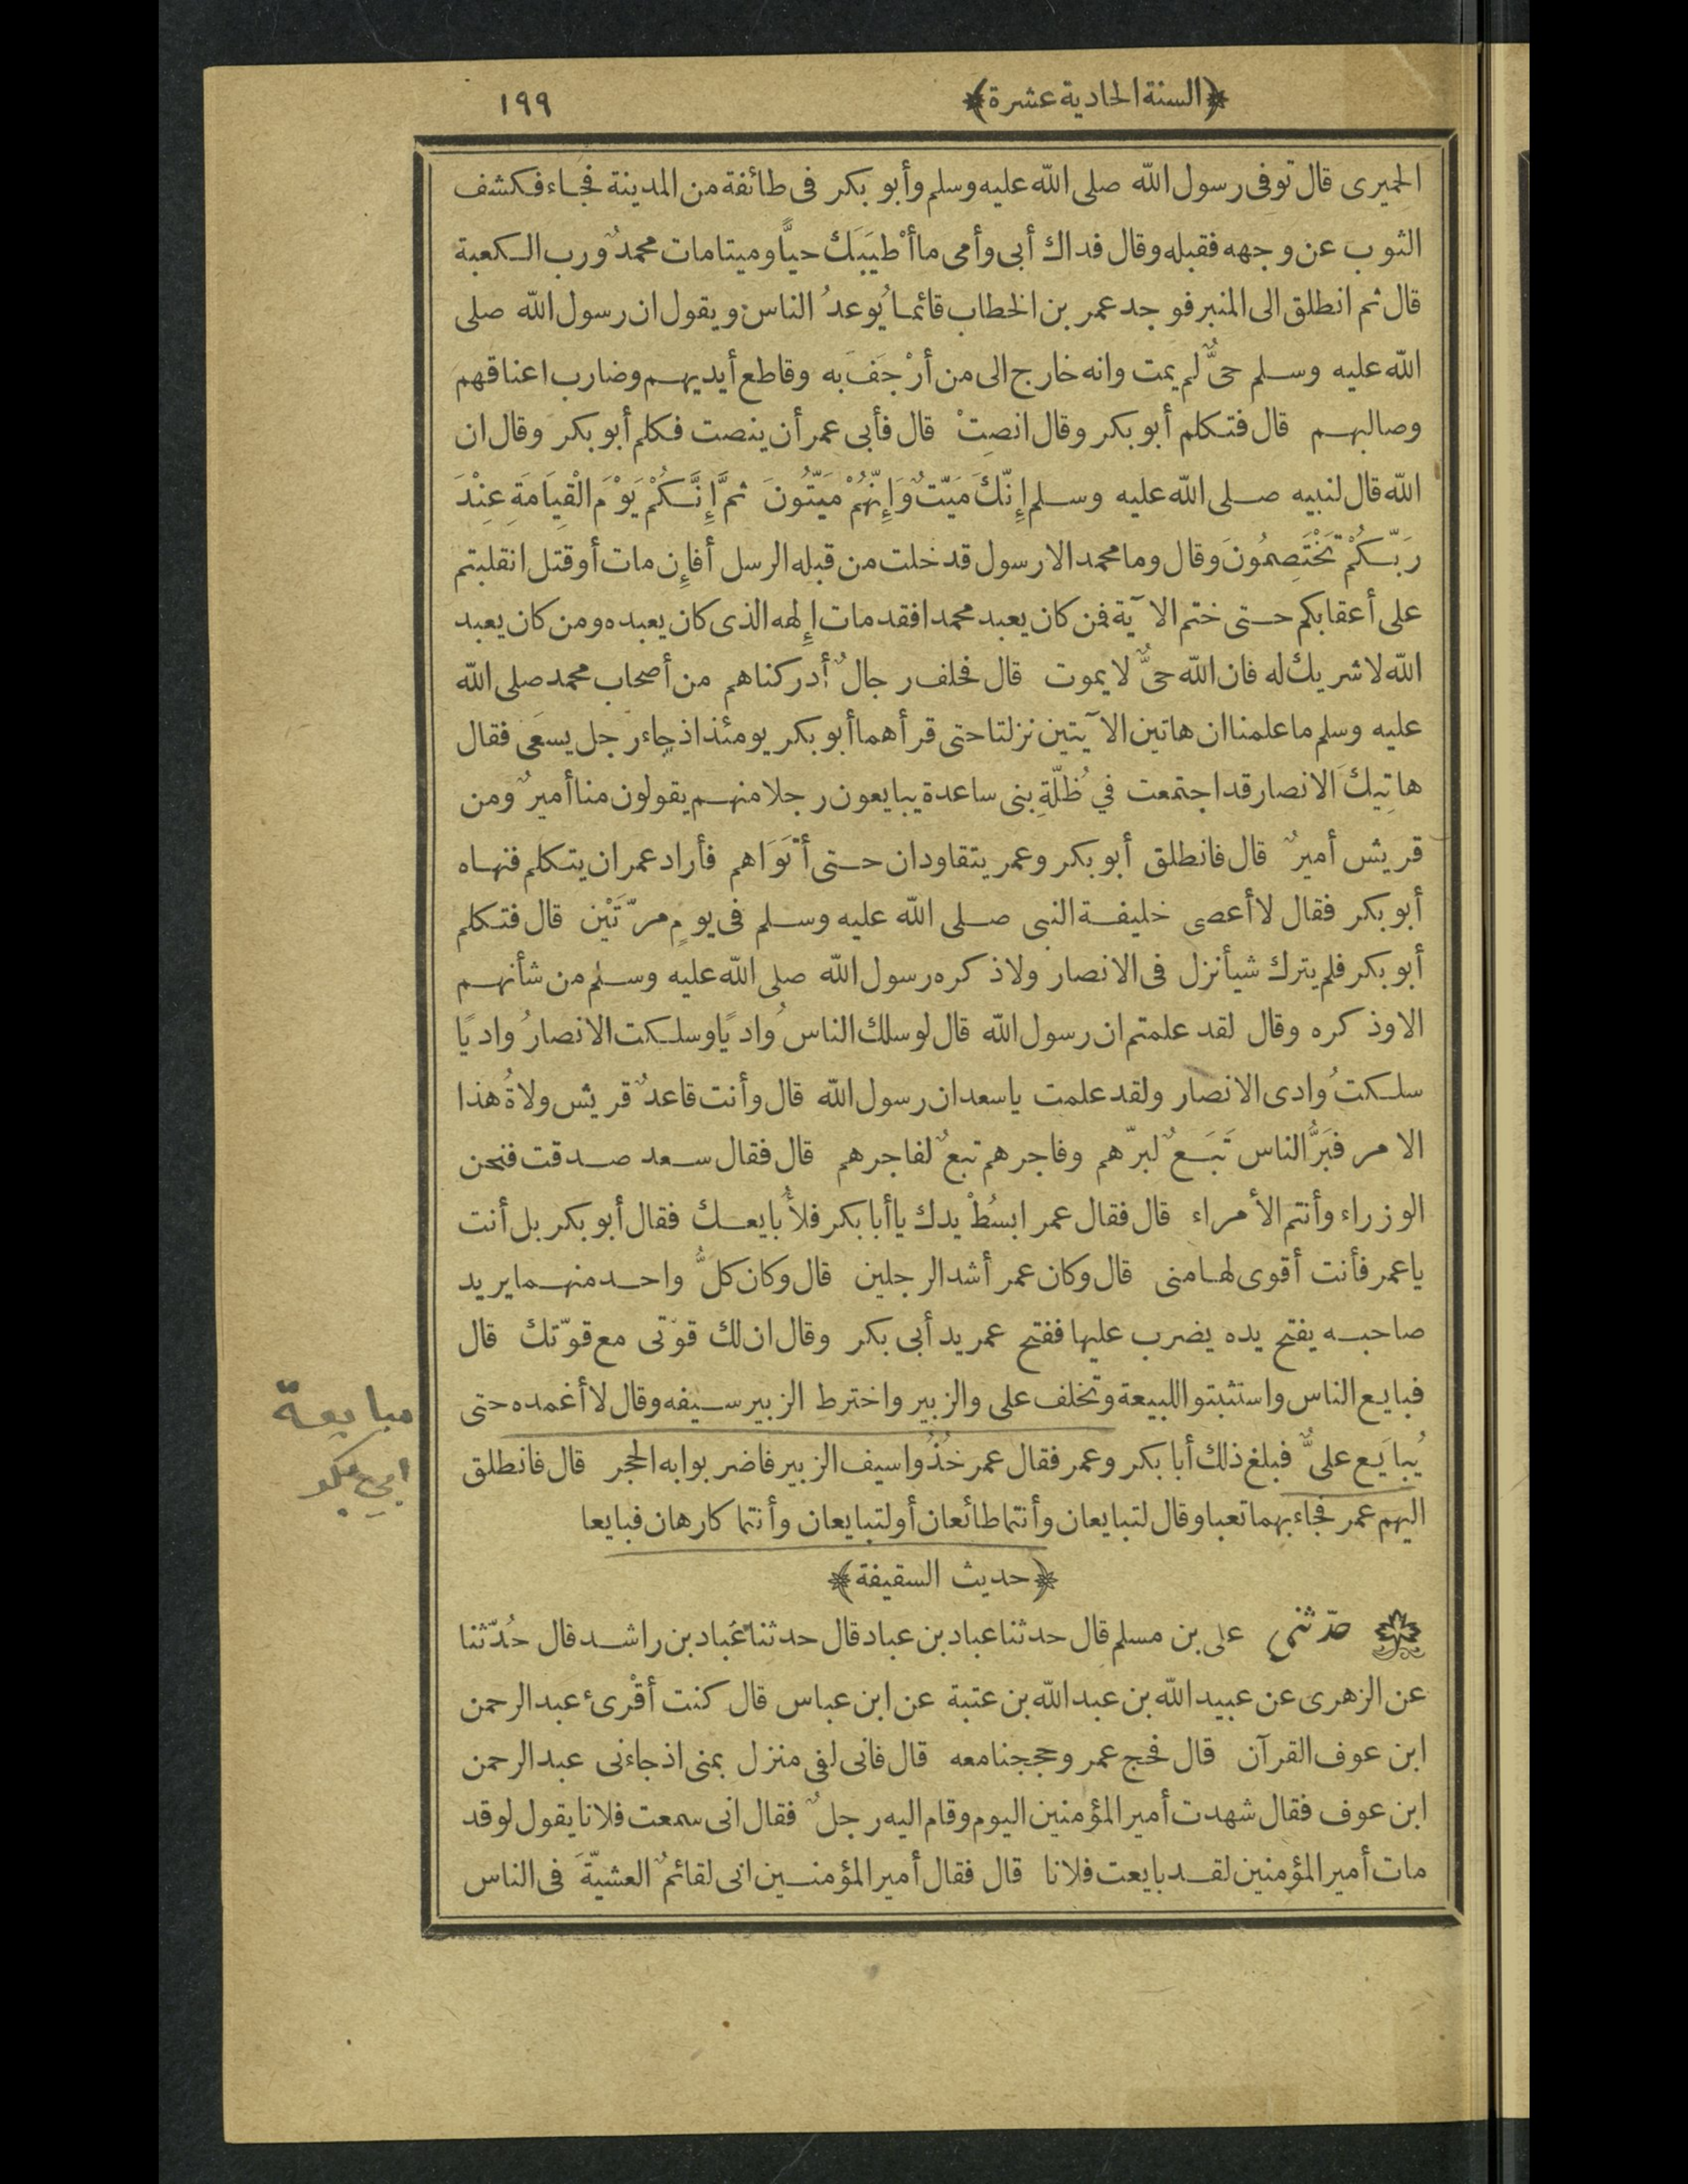 ﴿السنة الحادية عشرة﴾
١٩٩
الحميرى قال توفى رسول الله صلى الله عليه وسلم وأبو بكر فى طائفة من المدينة فجاء فكشف
الثوب عن وجهه فقبله وقال فداك أبى وأمى ما أَطْيَبَكَ حيًّا وميتا مات محمدٌ ورب الكعبة
قال ثم انطلق الى المنبر فوجد عمر بن الخطاب قائما يُوعدُ الناس ويقول ان رسول الله صلى
الله عليه وسلم حىٌّ لم يمت وانه خارج الى من أرْجَفَ به وقاطع أيديهم وضارب اعناقهم
وصالبهم قال فتكلم أبو بكر وقال انصِتْ قال فأبى عمر أن ينصت فكلم أبو بكر وقال ان
الله قال لنبيه صلى الله عليه وسلم إِنَّكَ مَيّتٌ وَإِنَّهُمْ مَيّتُونَ ثمَّ إِنَّكُمْ يَوْمَ الْقِيَامَةِ عِنْدَ
رَبّكُمْ تَخْتَصِمُونَ وقال وما محمد الا رسول قد خلت من قبله الرسل أفإن مات أو قتل انقلبتم
على أعقابكم حتى ختم الآية فمن كان يعبد محمدا فقد مات إلهه الذى كان يعبده ومن كان يعبد
الله لا شريك له فان الله حىٌّ لا يموت قال فحلف رجالٌ أدركناهم من أصحاب محمد صلى الله
عليه وسلم ما علمنا ان هاتين الآيتين نزلتا حتى قرأهما أبو بكر يومئذ اذ جاء رجل يسعَى فقال
هاتِيكَ الانصار قد اجتمعت في ظُلّةِ بنى ساعدة يبايعون رجلا منهم يقولون منا أميرٌ ومن
قريش أميرٌ قال فانطلق أبو بكر وعمر يتقاودان حتى أتَوَاهم فأراد عمر ان يتكلم فنهاه
أبو بكر فقال لا أعصى خليفة النبى صلى الله عليه وسلم فى يومٍ مرّتَيْن قال فتكلم
أبو بكر فلم يترك شيأ نزل فى الانصار ولا ذكره رسول الله صلى الله عليه وسلم من شأنهم
الا وذكره وقال لقد علمتم ان رسول الله قال لو سلك الناسُ واديًا وسلكت الانصارُ واديًا
سلكتُ وادى الانصار ولقد علمت يا سعد ان رسول الله قال وأنت قاعدٌ قريش ولاةُ هذا
الامر فبَرُّ الناس تَبَعٌ لبرّهم وفاجرهم تبعٌ لفاجرهم قال فقال سعد صدقت فنحن
الوزراء وأنتم الأمراء قال فقال عمر ابسُطْ يدك يا أبا بكر فلأُبايعك فقال أبو بكر بل أنت
يا عمر فأنت أقوى لها منى قال وكان عمر أشد الرجلين قال وكان كلُّ واحد منهما يريد
صاحبه يفتح يده يضرب عليها ففتح عمر يد أبى بكر وقال ان لك قوّتى مع قوّتك قال
فبايع الناس واستثبتوا للبيعة وتخلف على والزبير واخترط الزبير سيفه وقال لا أغمده حتى
يُبايَع علىٌّ فبلغ ذلك أبا بكر وعمر فقال عمر خُذُوا سيف الزبير فاضربوا به الحجر قال فانطلق
اليهم عمر فجاء بهما تعبا وقال لتبايعان وأنتما طائعان أو لتبايعان وأنتما كارهان فبايعا
مبايعة
ابي بكر
﴿حديث السقيفة﴾
حدّثنى على بن مسلم قال حدثنا عباد بن عباد قال حدثنا عباد بن راشد قال حُدّثنا
عن الزهرى عن عبيد الله بن عبد الله بن عتبة عن ابن عباس قال كنت أقْرئ عبد الرحمن
ابن عوف القرآن قال فحج عمر وحججنا معه قال فانى لفى منزل بمنى اذ جاءنى عبد الرحمن
ابن عوف فقال شهدت أمير المؤمنين اليوم وقام اليه رجلٌ فقال انى سمعت فلانا يقول لو قد
مات أمير المؤمنين لقد بايعت فلانا قال فقال أمير المؤمنين انى لقائمٌ العشيّةَ فى الناس